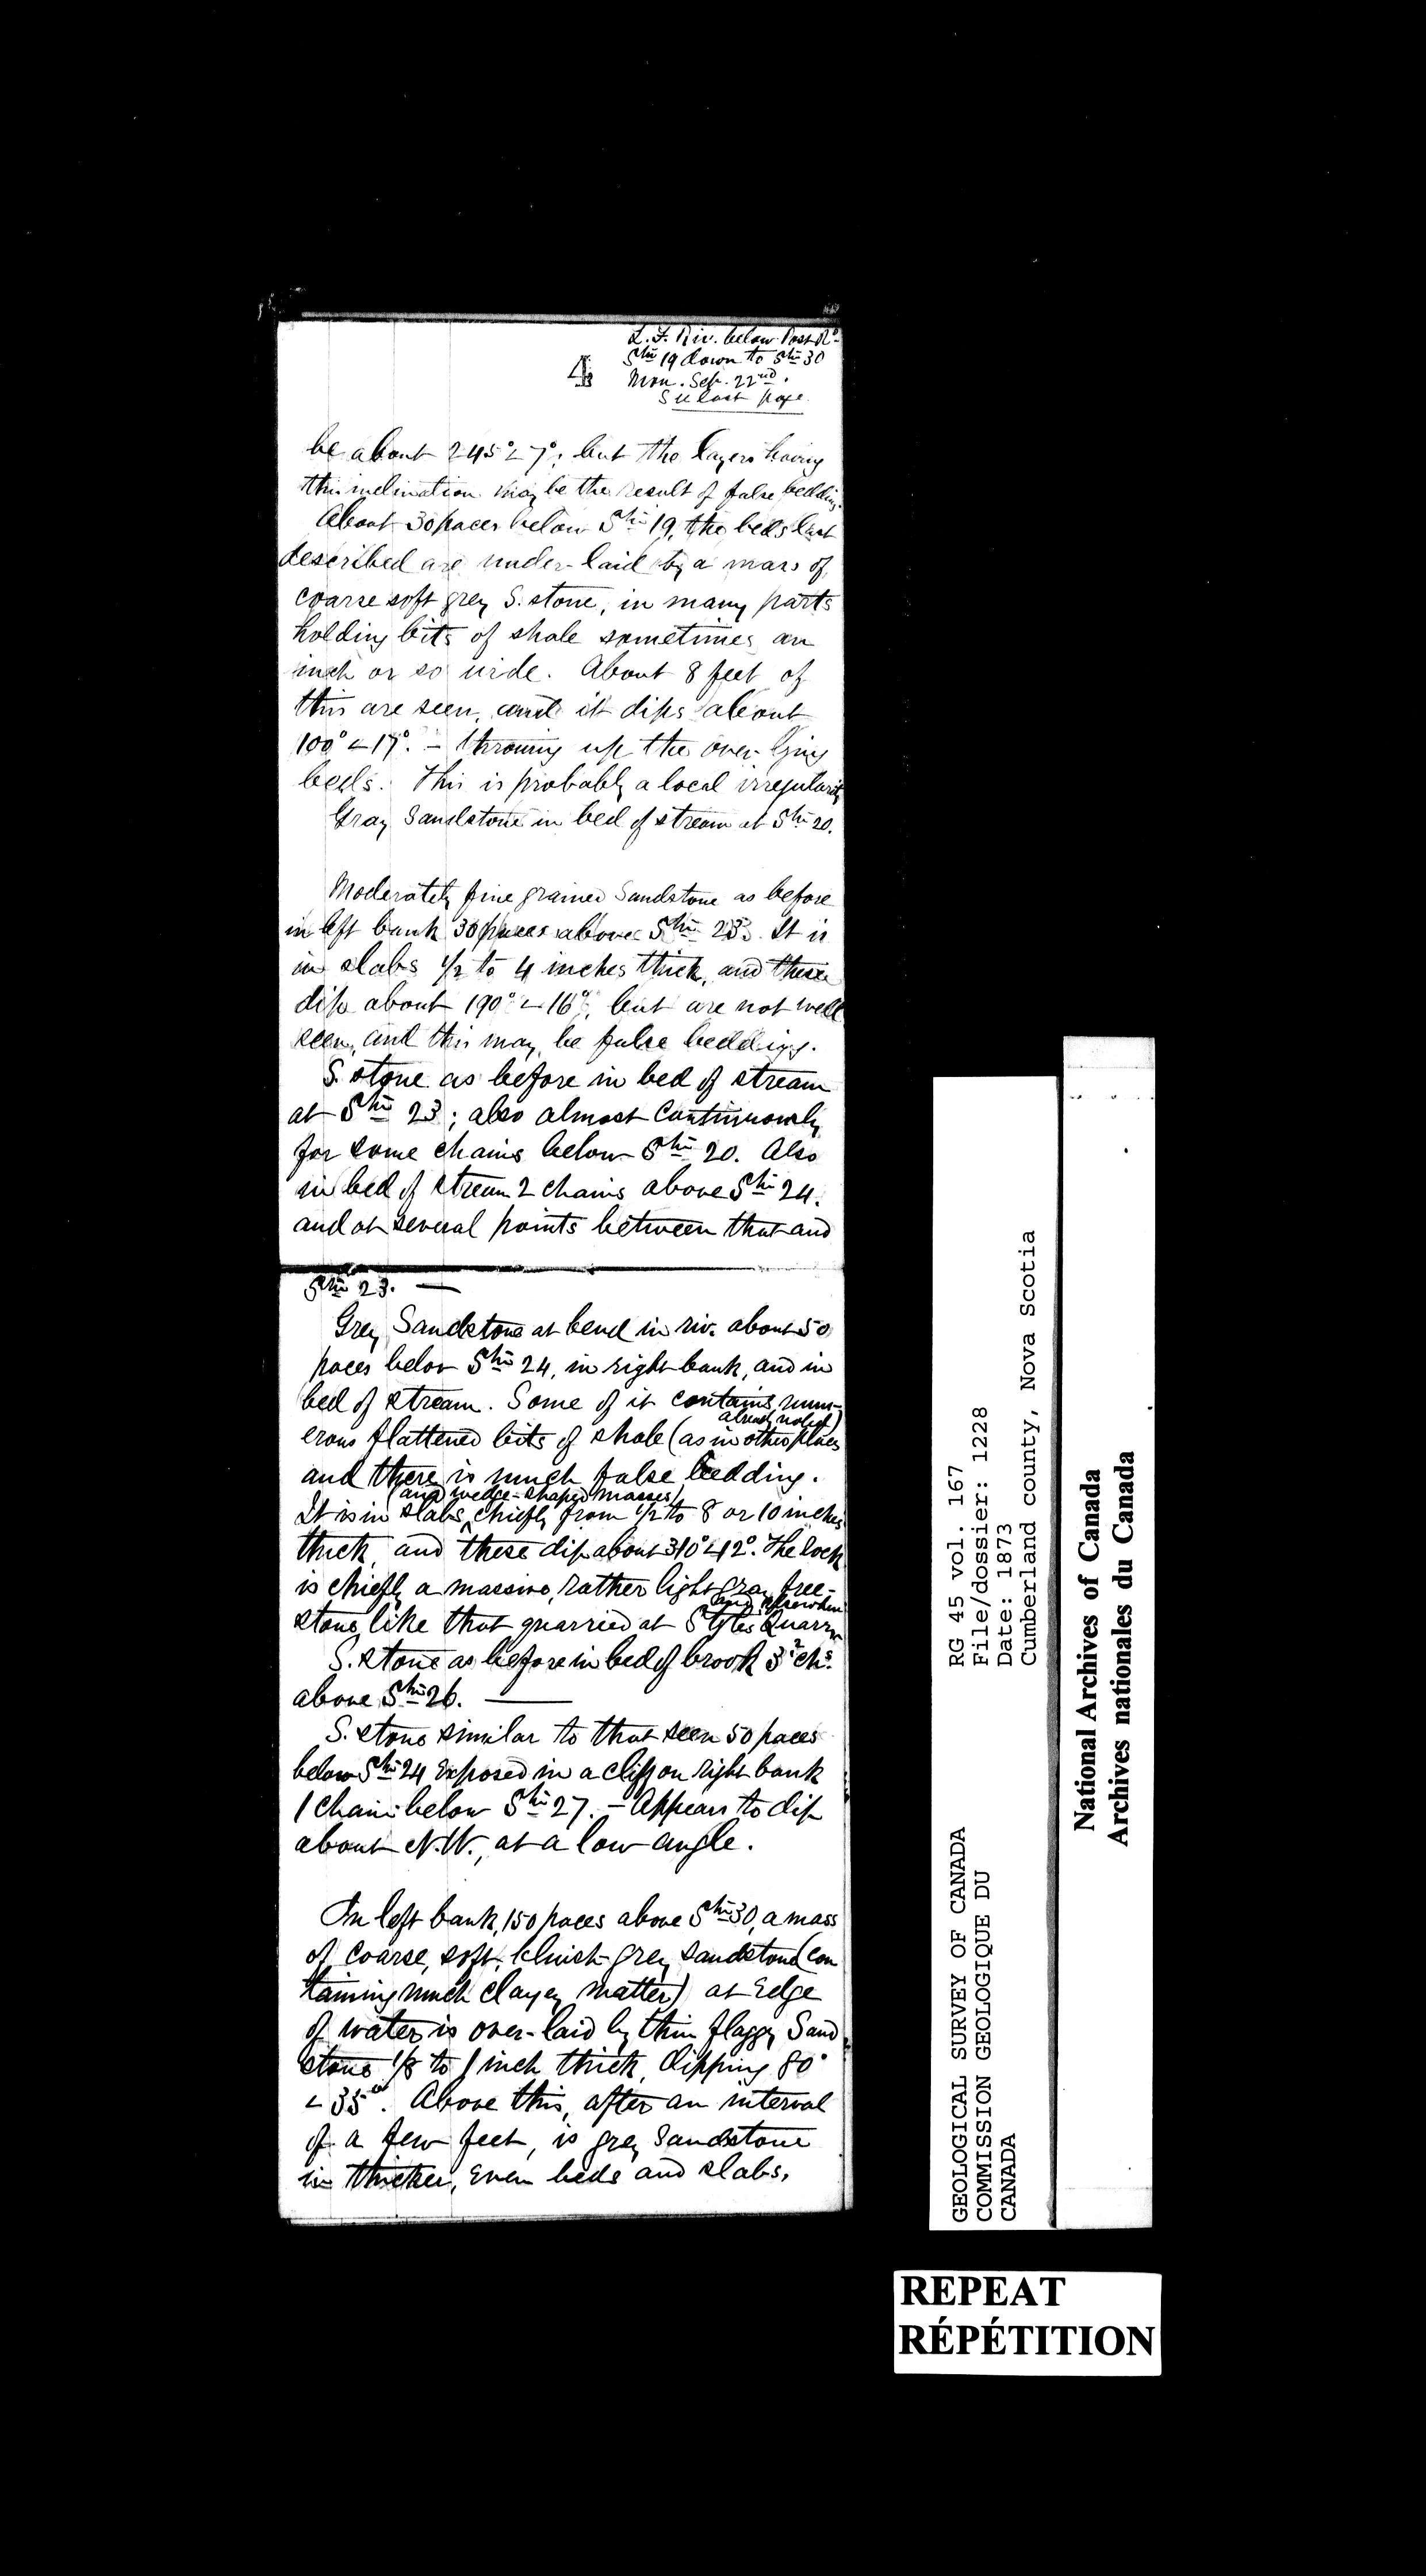 L. F. Riv. below Post Rd.
Stn 19 down to Stn 30
4
Mon. Sep. 22nd.
See last page
be about 245° ∠ 7°; but the layers having
this inclination may be the result of false bedding.
About 30 paces below Stn 19, the beds last
described are under-laid by a mass of
coarse soft grey S. stone, in many parts
holding bits of shale sometimes an
inch or so wide. About 8 feet of
this are seen, and it dips about
100° ∠ 17°. – throwing up the over-lying
beds. This is probably a local irregularity
Gray Sandstone in bed of stream at Stn 20.
Moderately fine grained Sandstone as before
in left bank 30 paces above Stn 23. It is
in slabs 1/2 to 4 inches thick, and these
dip about 190° ∠ 16°, but are not well
seen, and this may be false bedding.
S. stone as before in bed of stream
at Stn 23; also almost continuously
for some chains below Stn 20. Also
in bed of stream 2 chains above Stn 24.
and at several points between that and
Stn 23. —
Grey Sandstone at bend in riv. about 50
paces below Stn 24, in right bank, and in
bed of stream. Some of it contains num-
erous flattened bits of shale (as in other places
already noted)
and there is much false bedding.
It is in slabs (and wedge-shaped masses) chiefly from 1/2 to 8 or 10 inches
thick, and these dip about 310° ∠ 12°. The rock
is chiefly a massive, rather light gray free-
stone like that quarried at Styles Quarry
and elsewhere
S. stone as before in bed of brook 3 chs.
above Stn 26. —
S. stone similar to that seen 50 paces
below Stn 24 exposed in a cliff on right bank
1 chain below Stn 27. – Appears to dip
about N.W., at a low angle.
In left bank, 150 paces above Stn 30, a mass
of coarse, soft, bluish-grey sandstone (con
taining much clayey matter) at edge
of water is over-laid by thin flaggy Sand
stone 1/8 to 1 inch thick, dipping 80°
∠ 35°. Above this, after an interval
of a few feet, is grey Sandstone
in thicker, even beds and slabs.
GEOLOGICAL SURVEY OF CANADA
COMMISSION GEOLOGIQUE DU
CANADA
RG 45 vol. 167
File/dossier: 1228
Date: 1873
Cumberland county, Nova Scotia
National Archives of Canada
Archives nationales du Canada
REPEAT
RÉPÉTITION